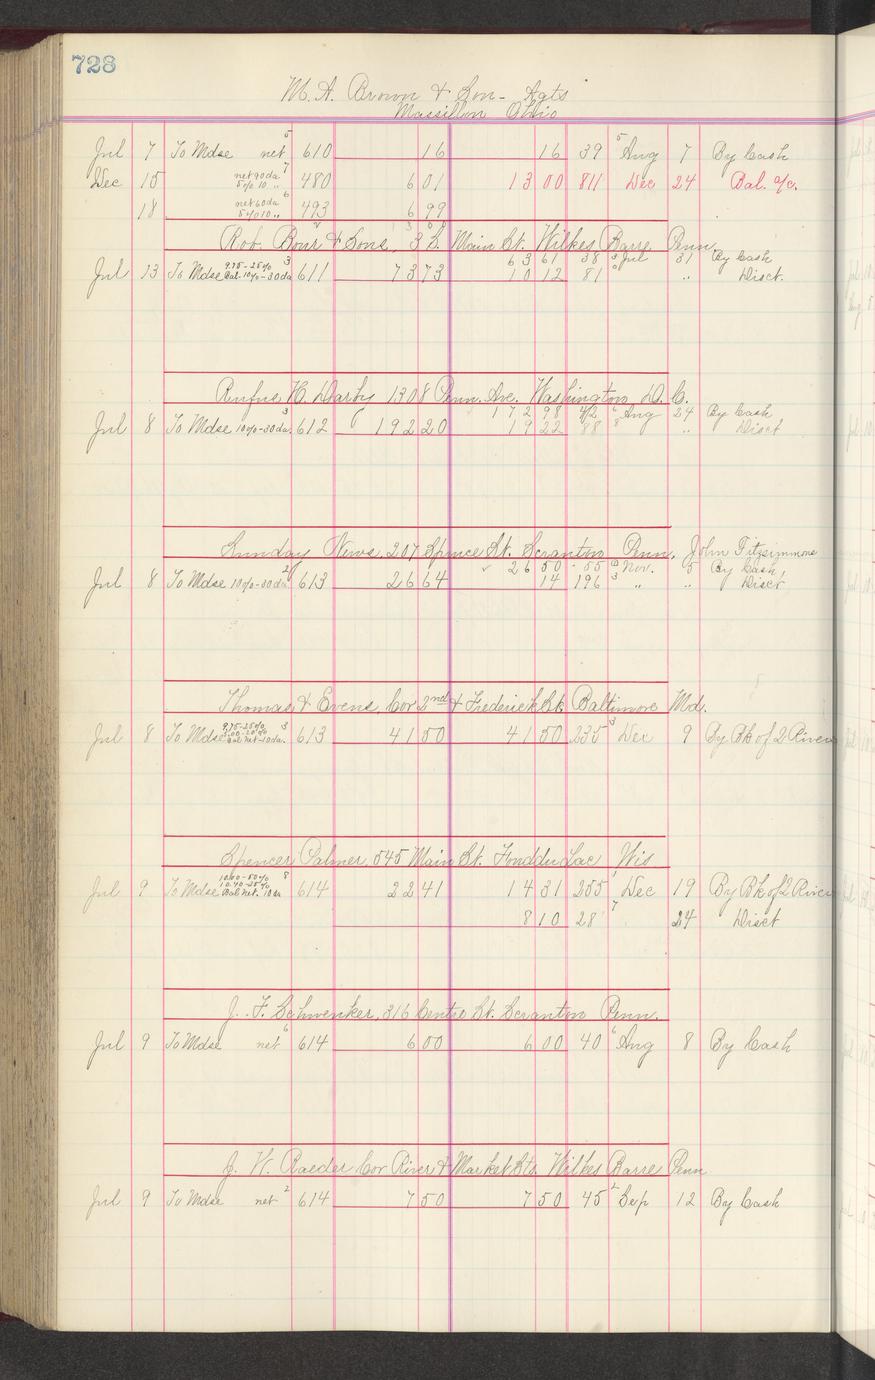 728
M. A. Brown & Son - Agts
Massillon Ohio
Jul 7 To Mdse net 5 610 16 16 39 5 Aug 7 By Cash
Dec 15 net 90 da 7 5% 10 " 480 6 01 13 00 811 Dec 24 Bal. a/c.
18 net 60 da 6 5% 10 " 493 6 99
Rob. Baur & Sons, 3 S. Main St. Wilkes Barre Penn
63 61 38 3 Jul 31 By Cash
Jul 13 To Mdse 9.75-25% Bal. 10%-30 da 3 611 73 73 10 12 81 " Disct.
Rufus H. Darby 1308 Penn. Ave. Washington D. C.
172 98 42 6 Aug 24 By Cash
Jul 8 To Mdse 10%-30 da. 3 612 192 20 19 22 88 8 " Disct
Sunday News, 207 Spruce St. Scranton Penn. John Fitzsimmons
✓ 26 50 55 Nov. 5 By Cash,
Jul 8 To Mdse 10%-30 da 2 613 26 64 14 196 3 " " Disct
Thomas & Evans, Cor 2nd & Frederick St. Baltimore Md.
Jul 8 To Mdse 9.75-25% Bal net-10 da. 3 613 41 50 41 50 235 3 Dec 9 By Bk of 2 Rivers
Spencer Palmer, 545 Main St. Fond du Lac Wis
Jul 9 To Mdse 10.00-50% 10.40-25% Bal net. 10 da 8 614 22 41 14 31 255 1 Dec 19 By Bk of 2 Rivers
8 10 28 7 24 Disct
J. F. Schwenker, 316 Centre St. Scranton Penn.
Jul 9 To Mdse net 6 614 6 00 6 00 40 6 Aug 8 By Cash
J. W. Raeder Cor River & Market Sts. Wilkes Barre Penn
Jul 9 To Mdse net 2 614 7 50 7 50 45 2 Sep 12 By Cash